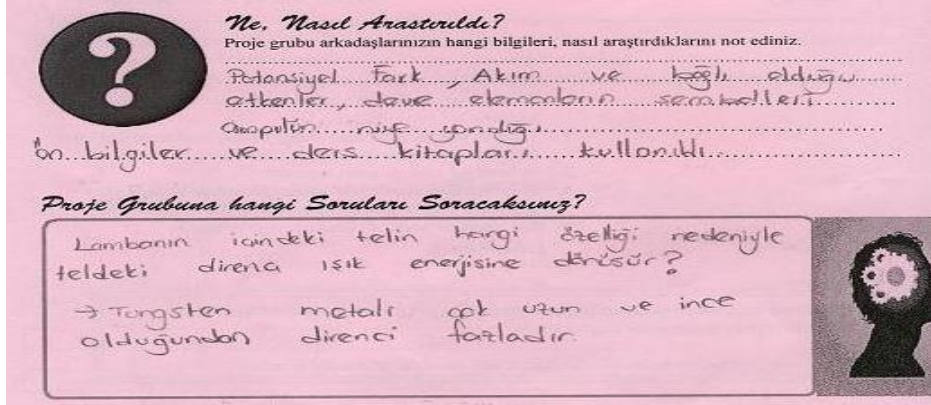 Ne, Nasıl Araştırıldı?
Proje grubu arkadaşlarınızın hangi bilgileri, nasıl araştırdıklarını not ediniz.
Potansiyel Fark, Akım ve bağlı olduğu
etkenler, devre elemanların sembolleri
Ampulün niye yandığı.
Ön bilgiler ve ders kitapları kullanıldı.
Proje Grubuna hangi Soruları Soracaksınız?
Lambanın içindeki telin hangi özelliği nedeniyle
teldeki direnç ışık enerjisine dönüşür?
→ Tungsten metali çok uzun ve ince
olduğundan direnci fazladır.